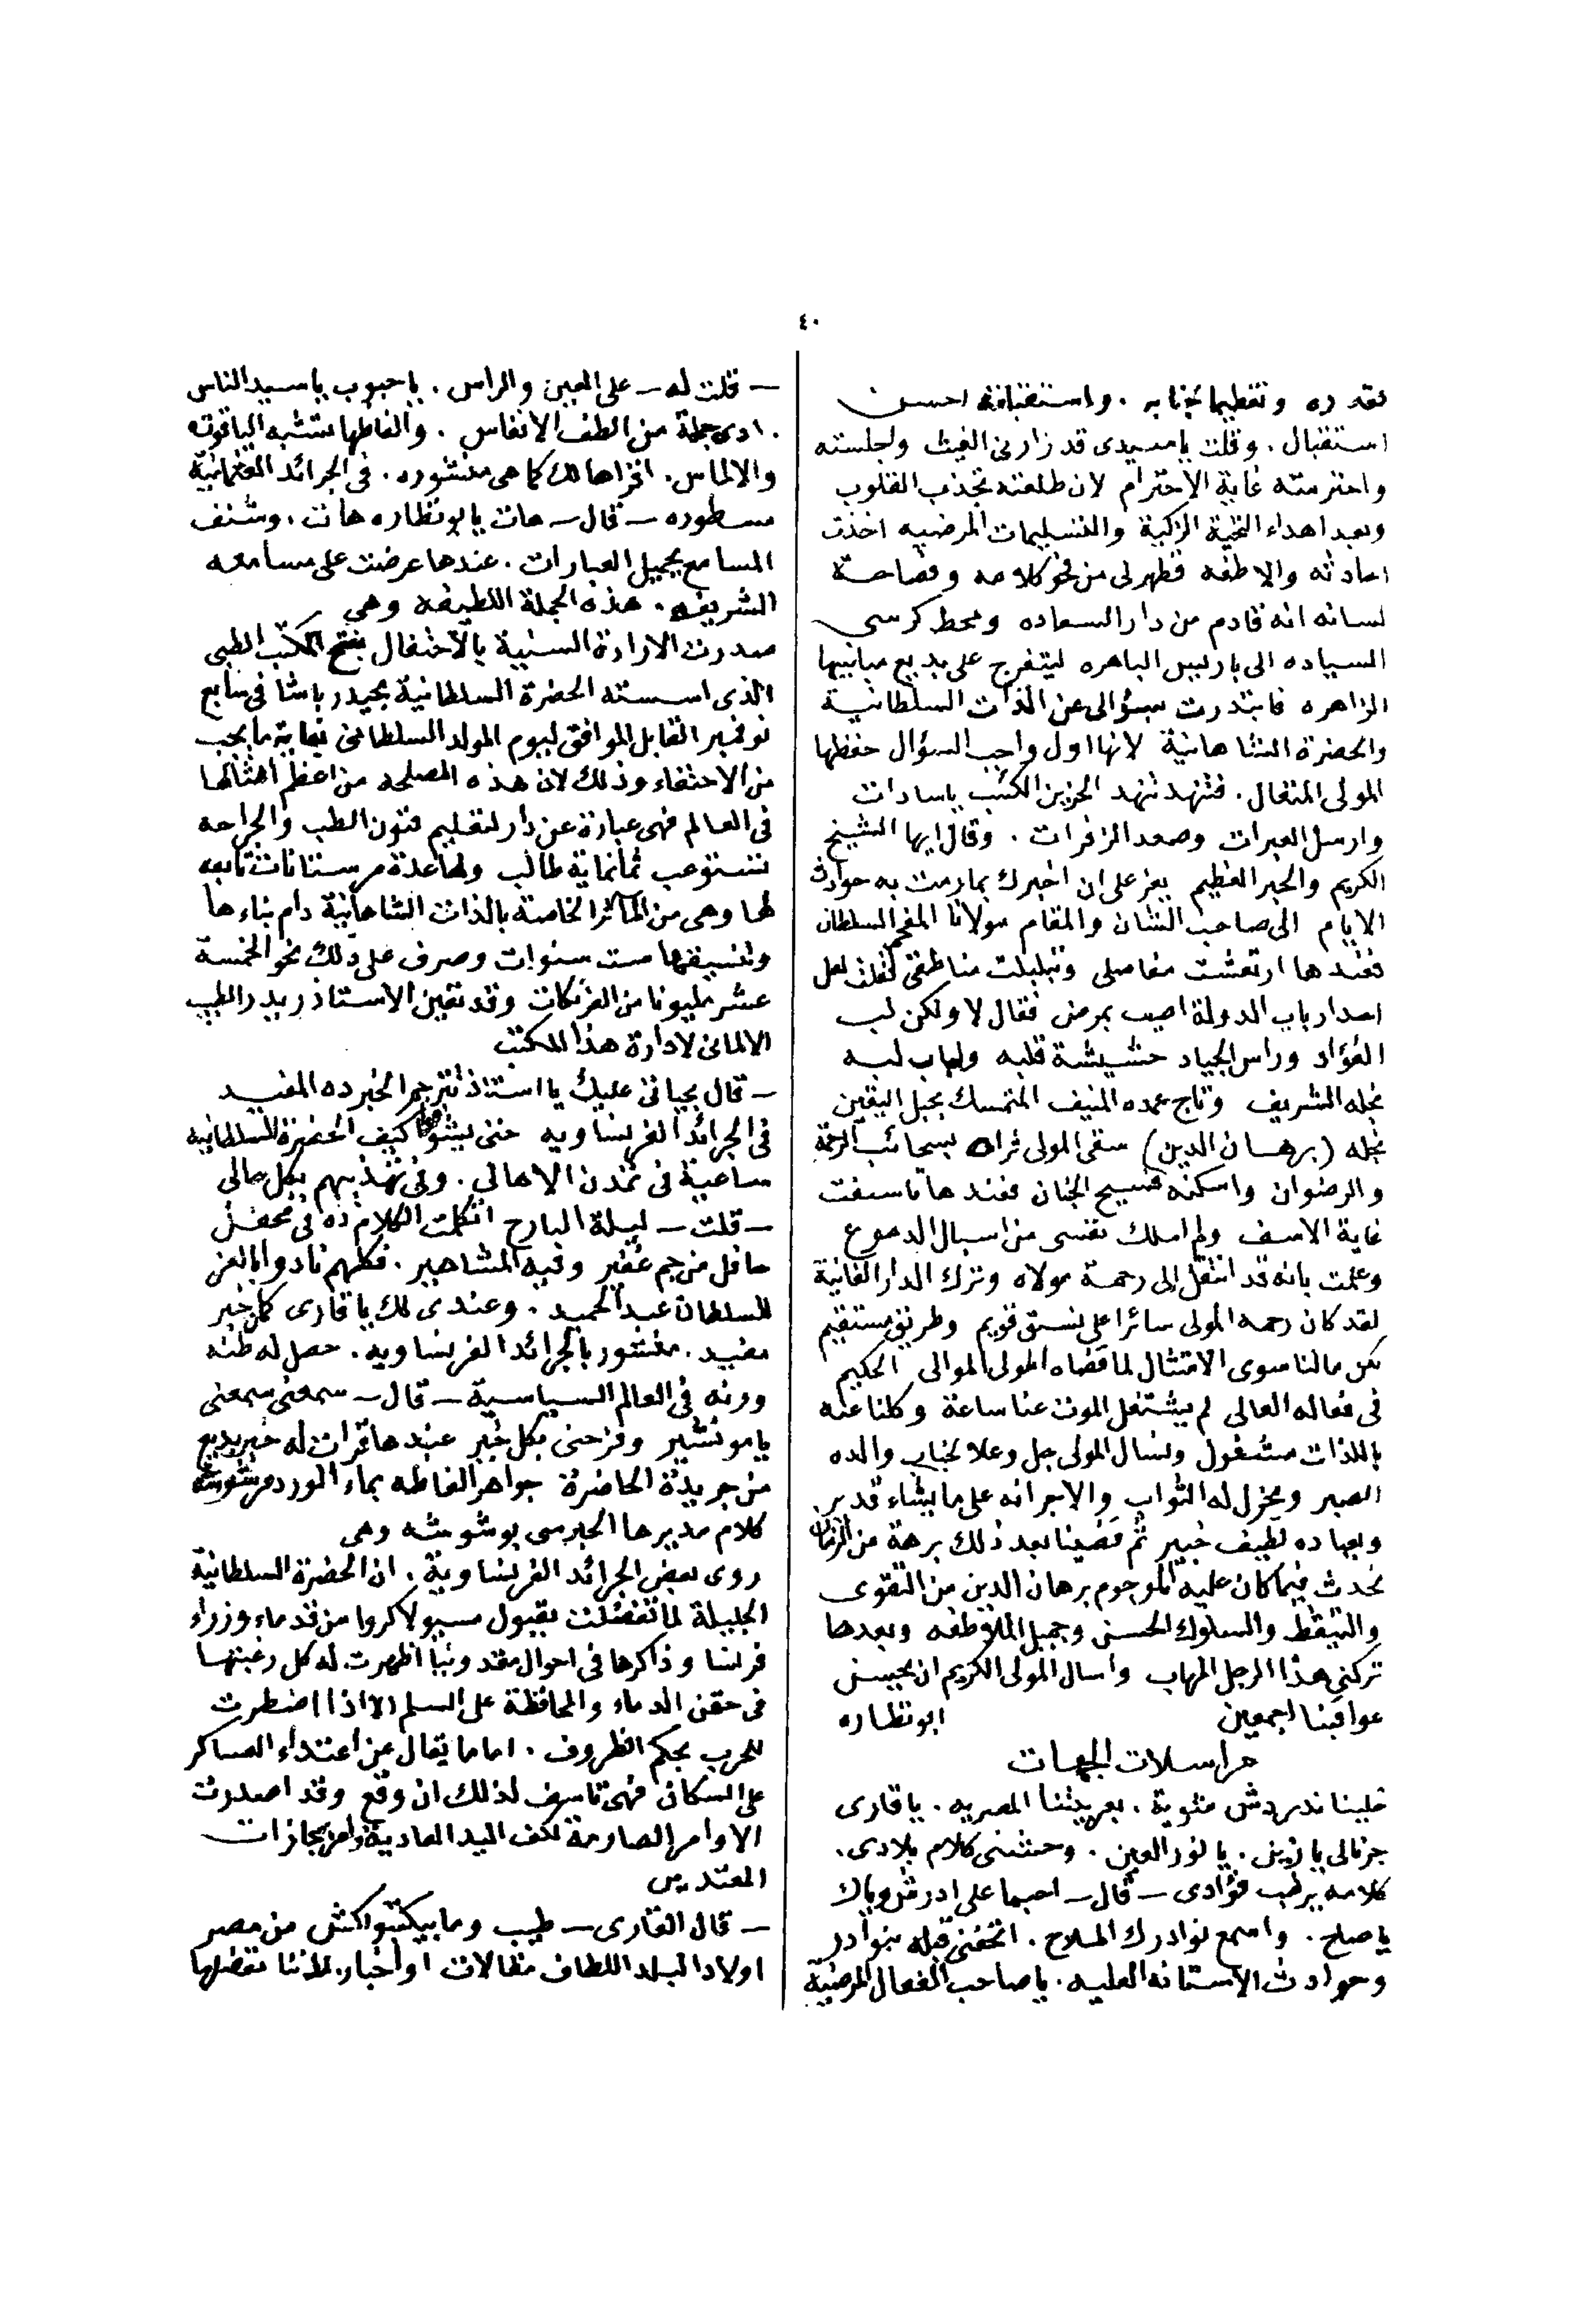 ٤٠
لقدره وتعظيما لجنابه . واستقبلته احسن
استقبال . وقلت ياسيدى قد زارنى الغيث واجلسته
واحترمته غاية الاحترام لان طلعته تجذب القلوب
وبعد اهداء التحية الزكية والتسليمات المرضيه اخذت
احادثه والاطفه فظهر لى من نحو كلامه وفصاحة
لسانه انه قادم من دار السعاده ومحط كرسى
السياده الى باريس الباهره ليتفرج على بديع مبانيها
الزاهره فابتدرت بسؤالى عن الذات السلطانية
والحضرة الشاهانية لانها اول واجب السؤال حفظها
المولى المتعال . فتنهد تنهد الحزين الكئيب ياسادات
وارسل العبرات وصعد الزفرات . وقال ايها الشيخ
الكريم والحبر العظيم يعز على ان اخبرك بما رمت به حوادث
الايام الى صاحب الشان والمقام مولانا المفخم السلطان
فعندها ارتعشت مفاصلى وتبلبلت مناطقى فقلت لعل
احد ارباب الدولة اصيب بمرض فقال لا ولكن لب
الفؤاد وراس الجياد حشيشة قلبه ولباب لبه
نجله الشريف وتاج عمده المنيف المتمسك بحبل اليقين
نجله (برهان الدين) سقى المولى ثراه بسحائب الرحمة
والرضوان واسكنه فسيح الجنان فعندها تاسفت
غاية الاسف ولم املك نفسى من اسبال الدموع
وعلمت بانه قد انتقل الى رحمة مولاه وترك الدار الفانية
لقد كان رحمه المولى سائرا على نسق قويم وطريق مستقيم
لكن مالنا سوى الامتثال لما قضاه المولى الموالى الحكيم
فى فعاله العالى لم يشتغل الموت عنا ساعة وكلنا عنه
باللذات مشغول ونسال المولى جل وعلا لجناب والده
الصبر ويجزل له الثواب والاجر انه على ما يشاء قدير
وبعباده لطيف خبير ثم قضينا بعد ذلك برهة من الزمان
نحدث فيما كان عليه المرحوم برهان الدين من التقوى
والتيقظ والسلوك الحسنى وجميل الملاطفه وبعدها
تركنى هذا الرجل المهاب واسال المولى الكريم ان يحسن
عواقبنا اجمعين ابو نظاره
مراسلات الجهات
خلينا ندردش شوية . بعربيتنا المصريه . يا قارى
جرنالى يا زين . يا نور العين . وحشنى كلام بلادى .
كلامه يرطب فؤادى – قال – احبما على ادردش وياك
يا صلح . واسمع نوادرك الملاح . اتحفنى قبله بنوادر
وحوادث الاستانه العليه . يا صاحب الفعال المرضية
– قلت له – على العين والراس . يا حبوب يا سيد الناس
. ادى جملة من الطف الانفاس . والفاظها تشبه الياقوت
والالماس . اقراها لك كما هى منشوره . فى الجرائد العثمانية
مسطوره – قال – هات يا ابو نظاره هات . وشنف
المسامع بجميل العبارات . عندها عرضت على مسامعه
الشريفه . هذه الجملة اللطيفه وهى
صدرت الارادة السنية بالاحتفال بفتح المكتب الطبى
الذى اسسته الحضرة السلطانية بحيدر باشا فى سابع
نوفمبر القابل الموافق ليوم المولد السلطانى بغاية ما يجب
من الاحتفاء وذلك لان هذه المصلحه من اعظم امثالها
فى العالم فهى عبارة عن دار لتعليم فنون الطب والجراحه
تستوعب ثمانماية طالب ولها عدة مرستانات تابعه
لها وهى من المآثر الخاصة بالذات الشاهانية دام بناءها
وتنسيقها ست سنوات وصرف على ذلك نحو الخمسة
عشر مليونا من الفرنكات وقد تعين الاستاذ ريدر الطبيب
الالمانى لادارة هذا المكتب
– قال بحياتى عليك يا استاذ تترجم الخبر ده المفيد
فى الجرائد الفرنساويه حتى يشوفوا كيف الحضرة السلطانيه
ساعية فى تمدن الاهالى . وفى تهذيبهم بكل مالى
– قلت – ليلة البارح اتكلمت الكلام ده فى محفل
حافل من جم غفير وفيه المشاهير . فكلهم نادوا بالعز
للسلطان عبد الحميد . وعندى لك يا قارى كمان خبر
مفيد . منشور بالجرائد الفرنساويه . حصل له طنه
ورنه فى العالم السياسية – قال – سمعنى سمعنى
يا مونشير وفرحنى بكل خبر عندها قرات له خبر بديع
من جريدة الحاضرة جواهر الفاظه بماء الورد مرشوشه
كلام مديرها الجبرسى بوشوشه وهى
روى بعض الجرائد الفرنساوية . ان الحضرة السلطانية
الجليلة لما تفضلت بقبول مسيو لاكروا من قدماء وزراء
فرنسا وذاكرها فى احوال مقدونيا اظهرت له كل رغبتها
فى حقن الدماء والمحافظة على السلم الا اذا اضطرت
للحرب بحكم الظروف . اما ما يقال عن اعتداء العساكر
على السكان فهى تاسف لذلك ان وقع وقد اصدرت
الاوامر الصارمة لكف اليد العادية وامر بمجازات
المعتدين
– قال القارى – طيب وما بيكتبوا كشى من مصر
اولاد البلد اللطاف مقالات او اخبار . لاننا نفضلها